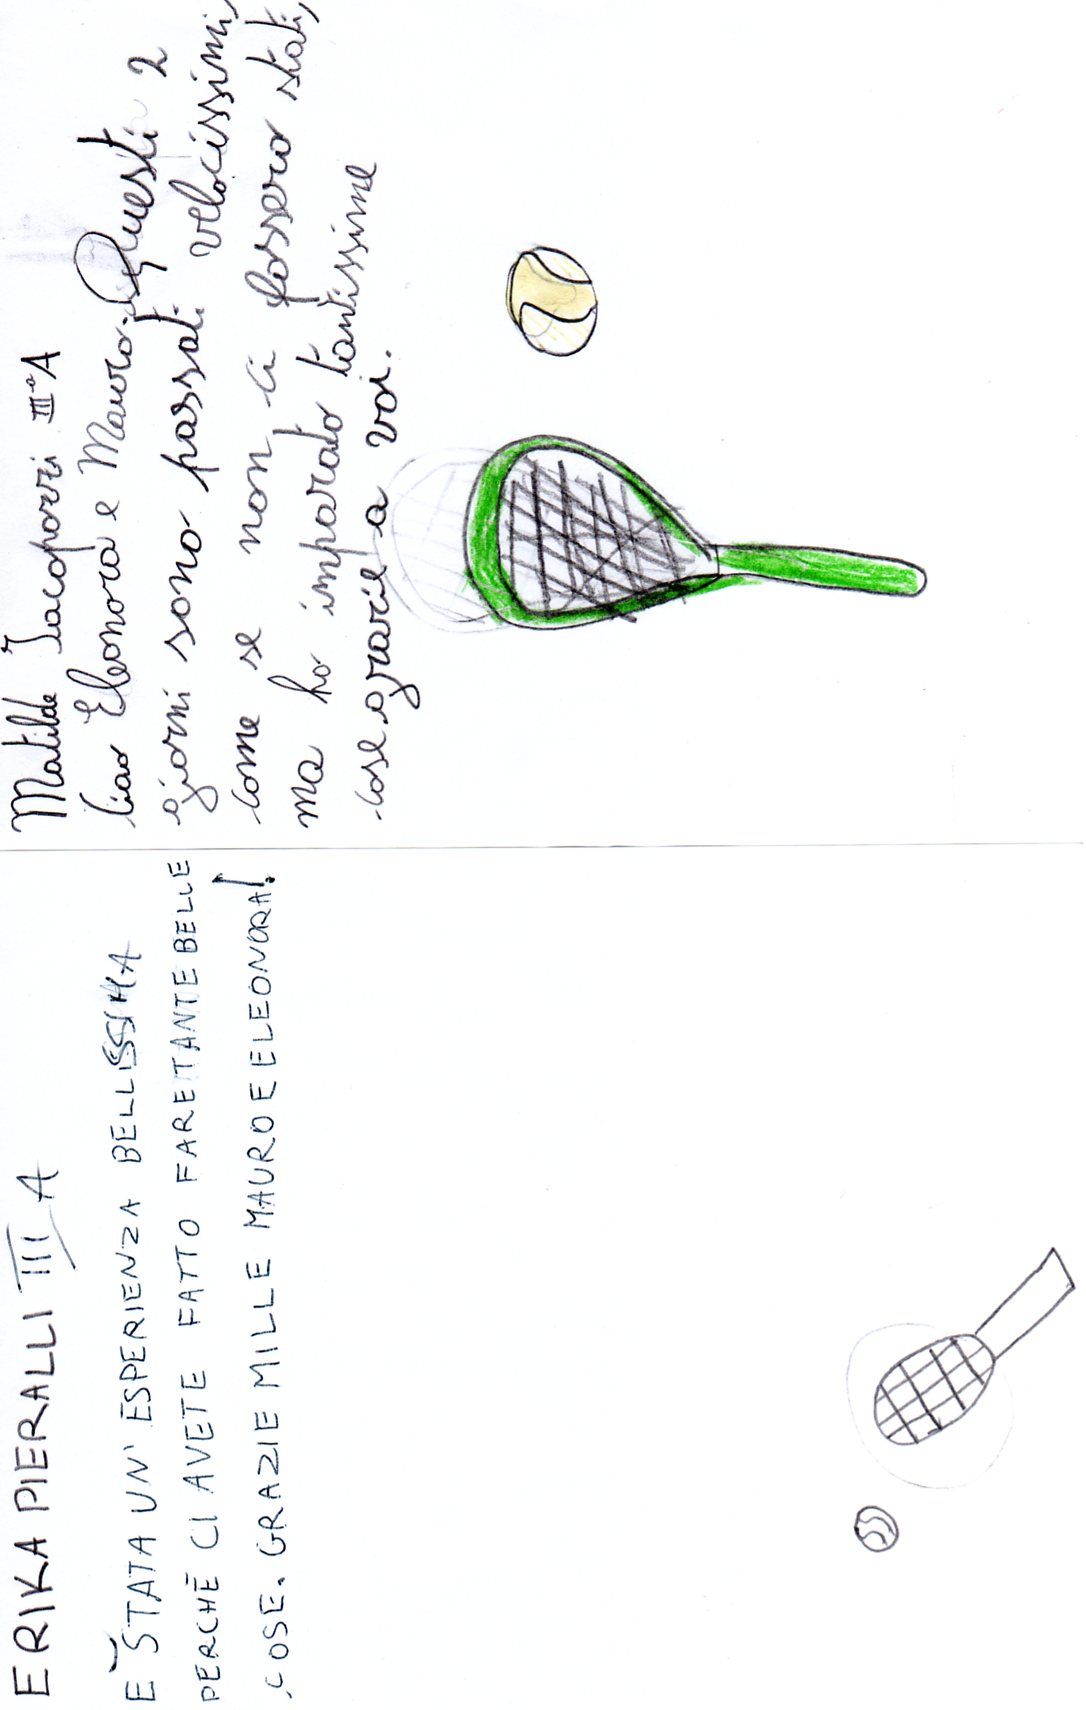 Matilde Iacopozzi III^a A
Ciao Eleonora e Mauro. Questi 2
giorni sono passati velocissimi,
come se non ci fossero stati,
ma ho imparato tantissime
cose grazie a voi.
ERIKA PIERALLI III A
È STATA UN' ESPERIENZA BELLISSIMA
PERCHÈ CI AVETE FATTO FARE TANTE BELLE
COSE. GRAZIE MILLE MAURO E ELEONORA!